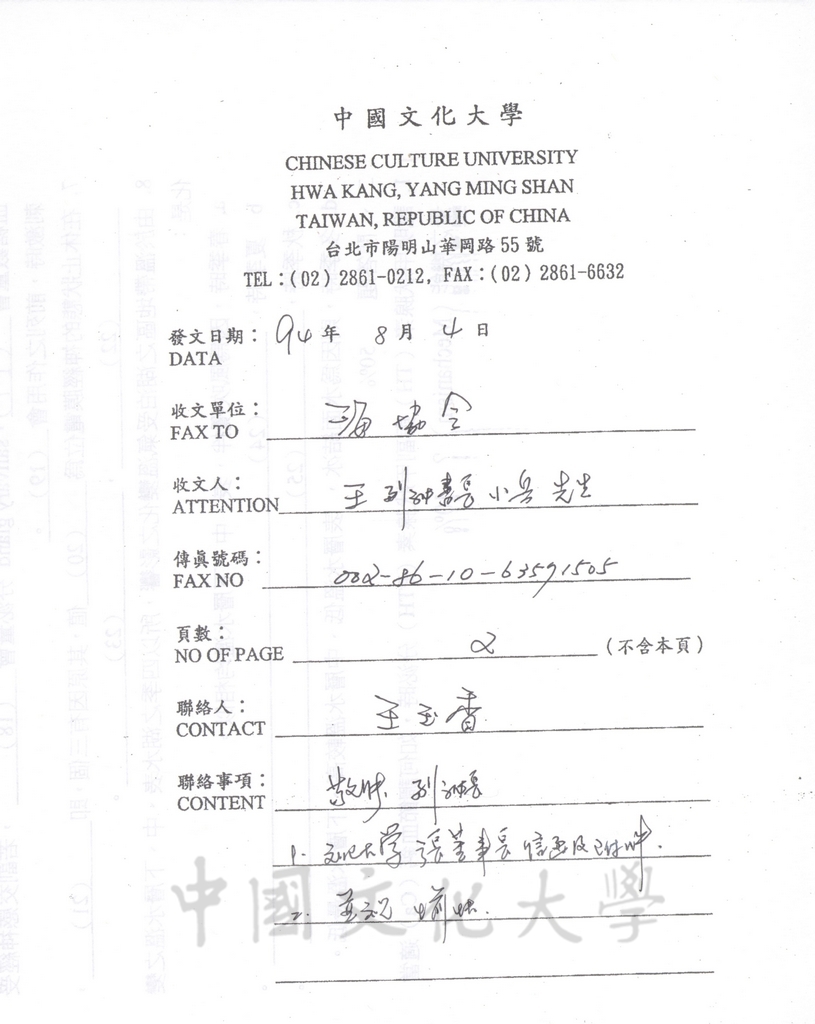 中國文化大學
CHINESE CULTURE UNIVERSITY
HWA KANG, YANG MING SHAN
TAIWAN, REPUBLIC OF CHINA
台北市陽明山華岡路 55 號
TEL：(02) 2861-0212, FAX：(02) 2861-6632
發文日期： 94 年 8 月 4 日
DATA
收文單位： 海協會
FAX TO
收文人： 王副秘書長小兵 先生
ATTENTION
傳真號碼： 002-86-10-63591505
FAX NO
頁數： 2 （不含本頁）
NO OF PAGE
聯絡人： 王玉香
CONTACT
聯絡事項：
CONTENT
1. 文化大学 張董事長信函及附件.
2. 並祝
中國文化大學